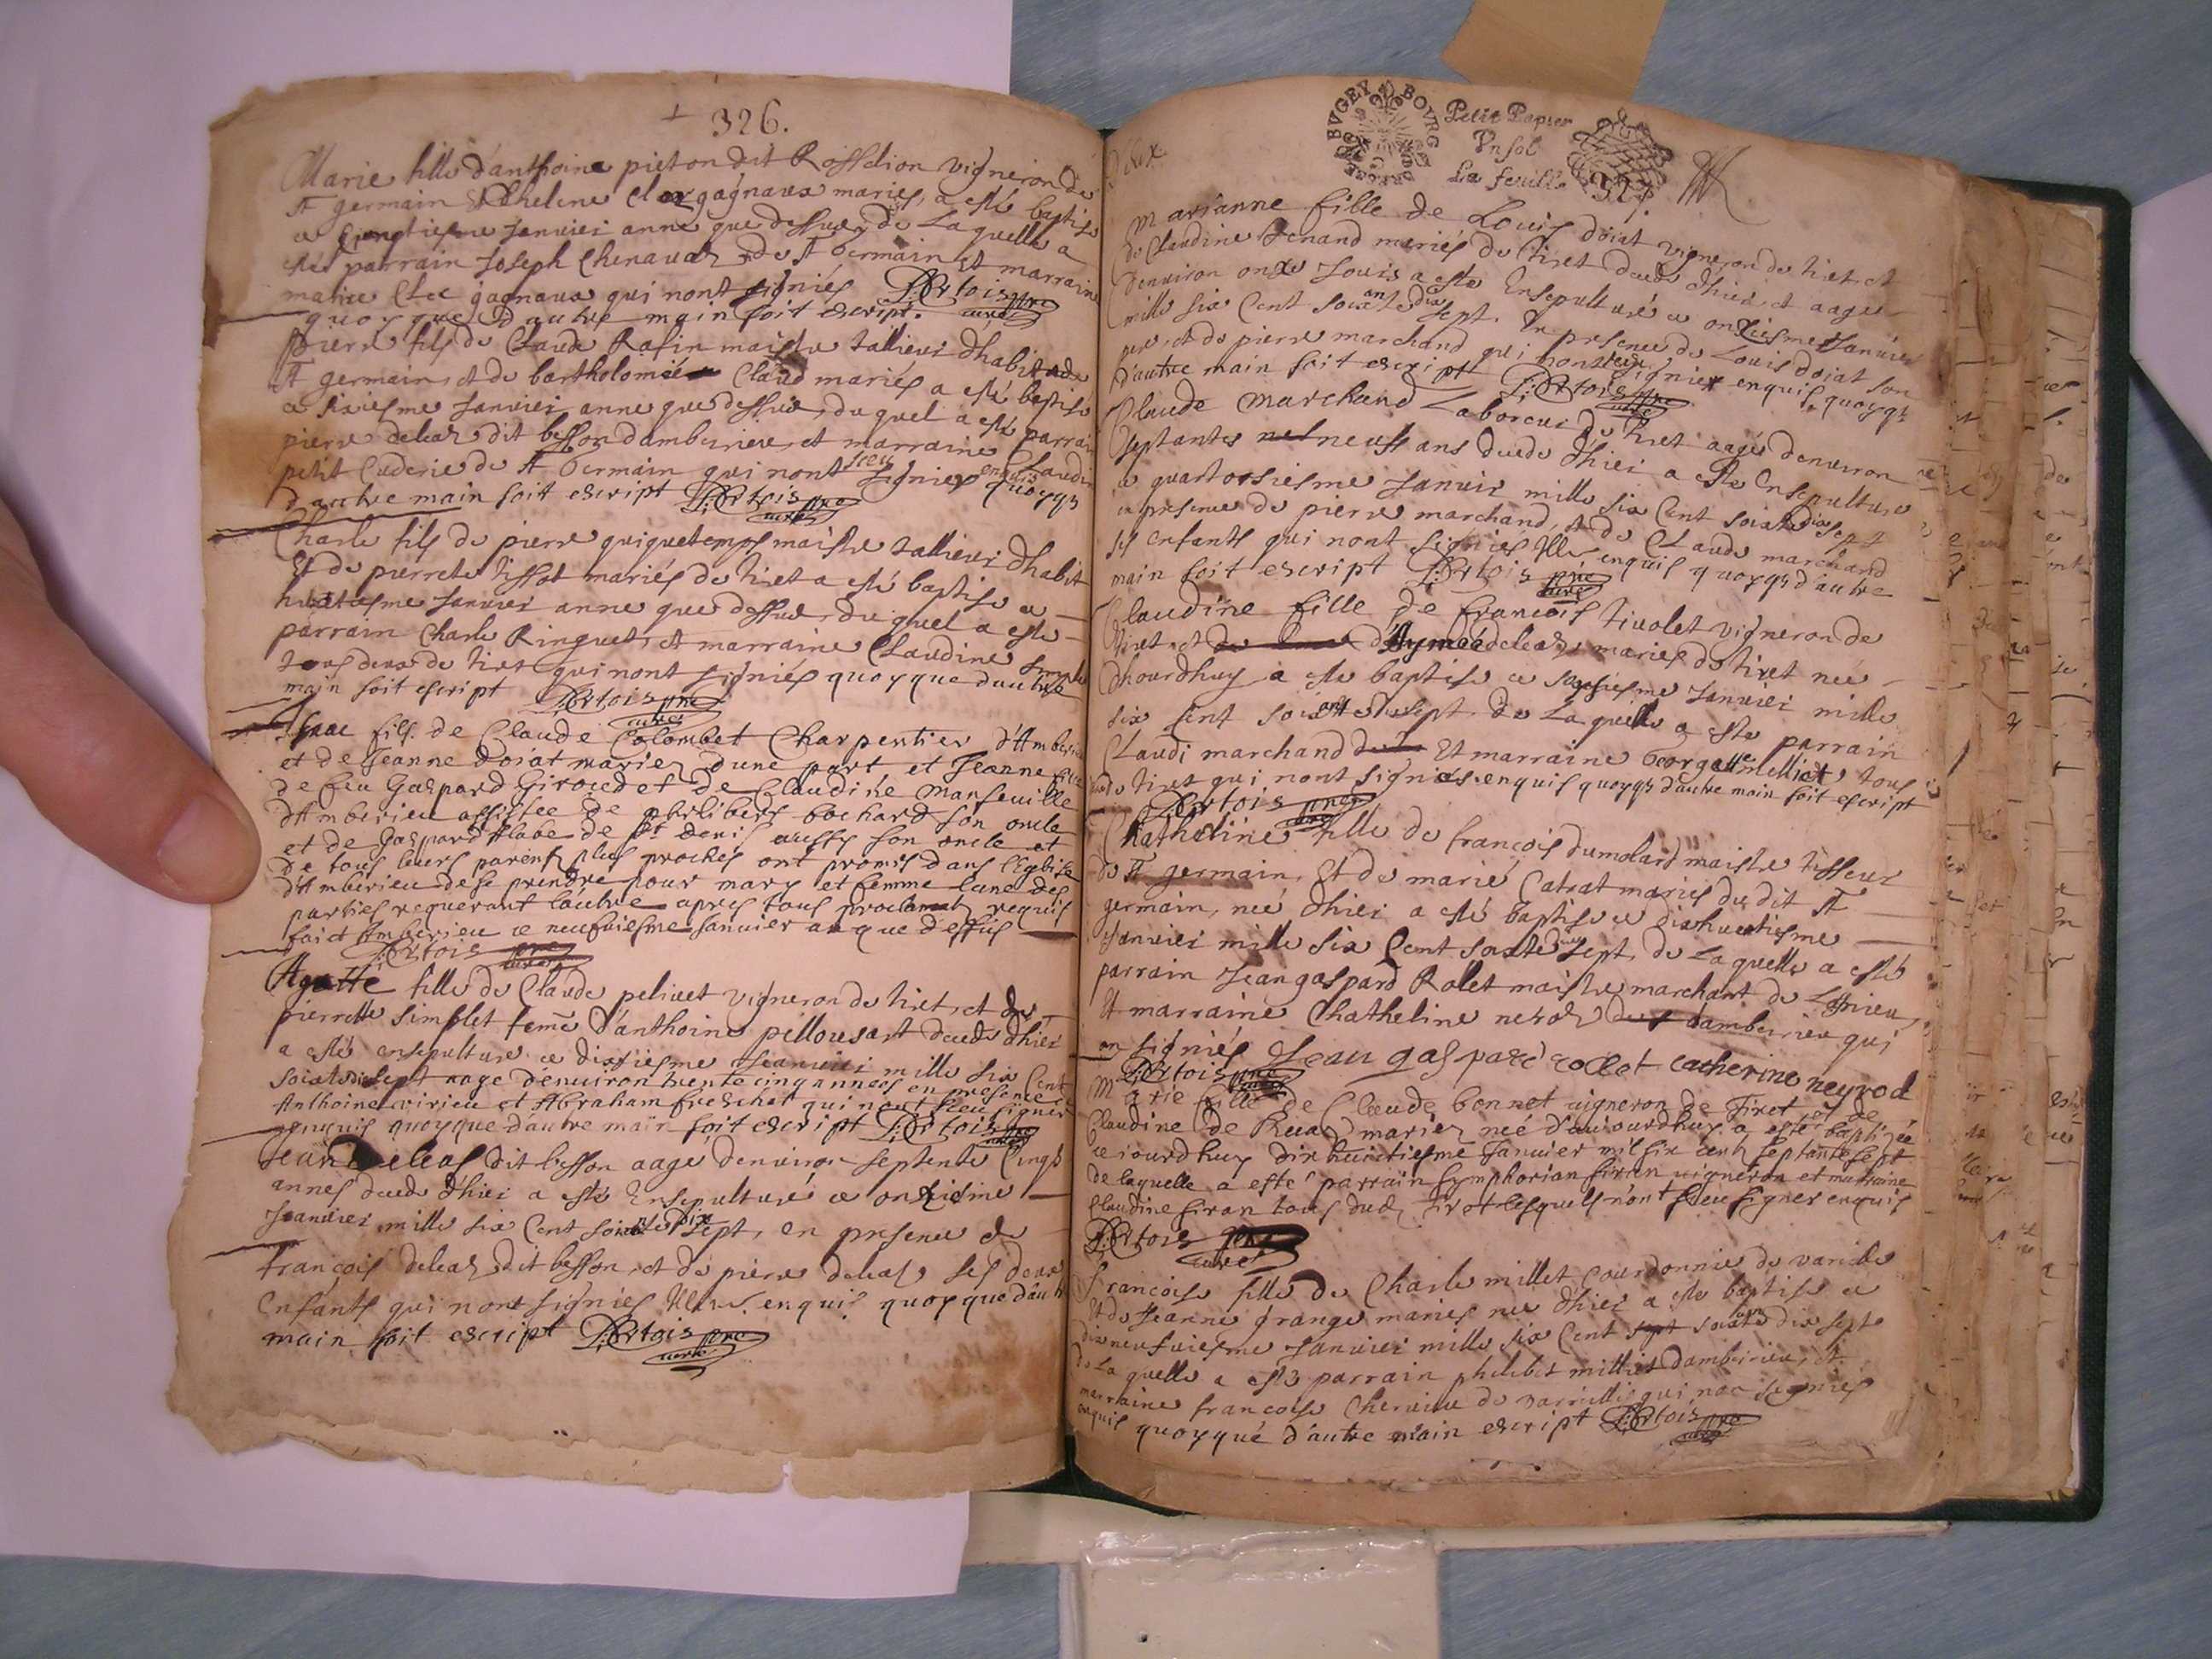 326.
Marie fille d'anthoine pieton dit Rosselion vigneron de
st germain Et helene Clergagnaux mariés, a esté baptise
ce cinquiesme Janvier anne que dessus, de Laquelle a
esté parrain Joseph Chenavaz de st Germain et marraine
gagnaux qui nont signiés P: Ortois pre
quoy que d'autre main soit escript. curé
pierre fils de Claude Rafin maistre tallieur dhabit de
st germain, et de bartholomiée Claud mariés a esté baptise
ce sixiesme Janvier anne que dessus, duquel a esté parrain
pierre deleaz dit besson damberieu, et marraine Claudin
petit Cuderie de st Germain qui nont sceu signier enquis quoyqs
d'autre main soit escript P: Ortois pre
curé
Charle fils de pierre quiquetemps maistre tallieur dhabit
Et de pierrete tissot mariés de tiret a esté baptise ce
huictiesme Janvier anne que dessus, du quel a este
parrain Charle Ringuet, et marraine Claudine
tous deux de tiret qui nont signiés quoyque dautre
main soit escript P: Ortois pre
curé
Isaac fils de Claude Colombet Charpentier d'Amberieu
et de Jeanne Doiat mariez dune part et Jeanne fille
de feu Gaspard Giroud et de Claudine Manseuille
d'Amberieu assistee de philibert bochard son oncle
et de Gaspard Alabe de st Denis aussy son oncle et
de tous leurs parens plus proches ont promis dans l'Eglise
d'Amberieu de se prendre pour mary et femme lune des
parties requerant lautre apres tous proclamats requis
faict Amberieu ce neufuiesme Janvier an que dessus
P: Ortois pre
curé
Agatte fille de Claude peliuet vigneron de tiret, et de
pierrette simplet feme d'anthoine pellousart decede dhier
a esté ensepulture ce dixiesme Jeanvier mille six Cent
soixte dix sept aage denuiron trente cinq annees en presence
Anthoine virieu et Abraham freschet qui nont sceu signer
enquis quoyque d'autre main soit escript P: Ortois pre
curé
Jean deleas dit besson aage denuiron septente Cinqs
annes decede d'hier a esté Ensepulturé ce onziesme
Jeanvier mille six Cent soixante Dix sept, en presence de
francois deleaz dit besson, et de pierre deleas ses deux
Enfants qui nont signiés enquis quoy que dautr
main soit escript P: Ortois pre
curé
BVGEY BOVRG
Petit Papier
Vn sol
La feuille
327
Marianne fille de Louis doiat vigneron de tiret, et
de Claudine Jenand mariés de tiret decede dhier et aagee
denviron onze Jouis a este Ensepulturé ce onziesme Janvier
mille six Cent soixante dix sept. En presence de Louis doiat son
pere, et de pierre marchand qui nont sceu signier enquis quoyqs
d'autre main soit escript P: Ortois pre
curé
Claude marchand Laboreur de tiret aagé denviron
septante neufs ans decede d'hier a este Ensepulture
ce quartorsiesme Janvier mille six Cent soixte dix sept
en presence de pierre marchand, et de Claude marchand
ses enfants qui nont signiés enquis quoyqs d'autre
main soit escript P: Ortois pre
curé
Claudine fille de francois tivolet vigneron de
tiret et d'Aymeé deleaz mariés de tiret neé
dhourdhuy a este baptise ce Janvier mille
six sent soixante dix sept de Laquelle a este parrain
Claudi marchand Et marraine Georgatte melliet tous
de tiret qui nont signiés enquis quoyqs d'autre main soit escript
P: Ortois pre
curé
Chatheline fille de francois dumolard maistre tisseur
de st germain, Et de marie Catrat mariés du dit st
germain, neé dhier a esté baptise ce dixhuictiesme
Janvier mille six Cent soixte dix sept, de Laquelle a esté
parrain Jeangaspard Rolet maistre marchant de Lagnieu,
Et marraine Chatheline neroz damberieu qui
on signiés Jean gaspard rollet catherine neyrod
P: Ortois pre
curé
Marie fille de Claude bonnet vigneron de Tiret et de
Claudine De Rua mariez neé d'auiourdhuy a esté baptizée
ce iourdhuy dix huictiesme Januier mil six cent septante sept
de laquelle a esté parrain symphorian siran uigneron et marraine
Claudine siran tous dud tiret lesquels n'ont sceu signer enquis
P: Ortois pre
curé
francoise fille de Charle millet Courdonnie de varielle
Et de Jeanne grange mariés nee d'hier a este baptise ce
dix neufuiesme Janvier mille six Cent soixante dix septe
de La quelle a esté parrain philibet milliet damberieu, et
marraine francoise de varielle qui non signies
enquis quoyqué d'autre main escript P: Ortois pre
curé